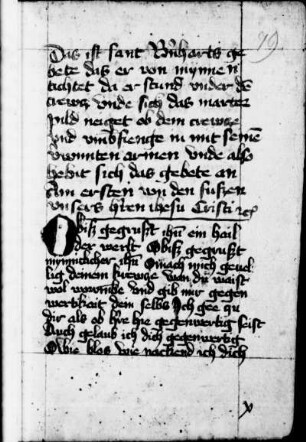 79
Das ist sant Bernharts ge
bete das er von mynnen
tichtet da er stund vnder dē
crewcz vnde sich das marter
pild neiget ob dem crewcze
vnd vmbfienge in mit seinē
wunten armen vnde also
hebt sich das gebete an
Am ersten von den fussen
vnsers hren ihesu Cristi
O biß gegrußt ihū ein hail
der werlt O biß gegrußt
mynniclicher ihū mach mich geuel
lig deinem krewcze wan du waist
wol warumbe vnd gib mir gegen
wertikeit dein selbs Ich gee zu
dir als ob du hie gegenwertig seist
Auch gelaub ich dich gegenwertig
O wie blos wie nackend ich dich